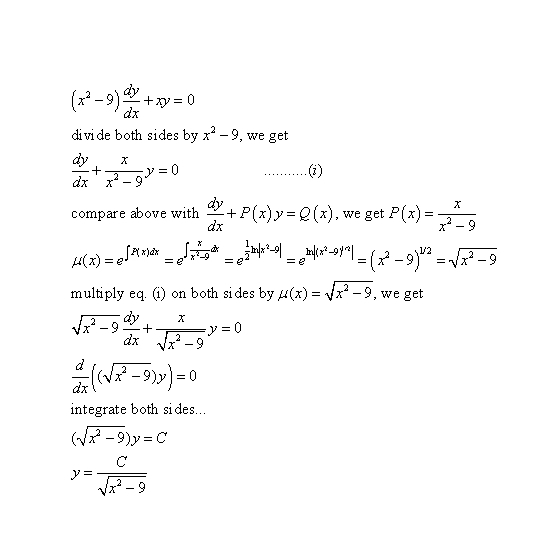 (x² − 9) dy/dx + xy = 0
divide both sides by x² − 9, we get
dy/dx + x/(x² − 9) y = 0 ...........(i)
compare above with dy/dx + P(x)y = Q(x), we get P(x) = x/(x² − 9)
μ(x) = e^(∫P(x)dx) = e^(∫x/(x²−9) dx) = e^(1/2 ln|x²−9|) = e^(ln|(x²−9)^(1/2)|) = (x² − 9)^(1/2) = √(x² − 9)
multiply eq. (i) on both sides by μ(x) = √(x² − 9), we get
√(x² − 9) dy/dx + x/√(x² − 9) y = 0
d/dx((√(x² − 9))y) = 0
integrate both sides...
(√(x² − 9))y = C
y = C/√(x² − 9)